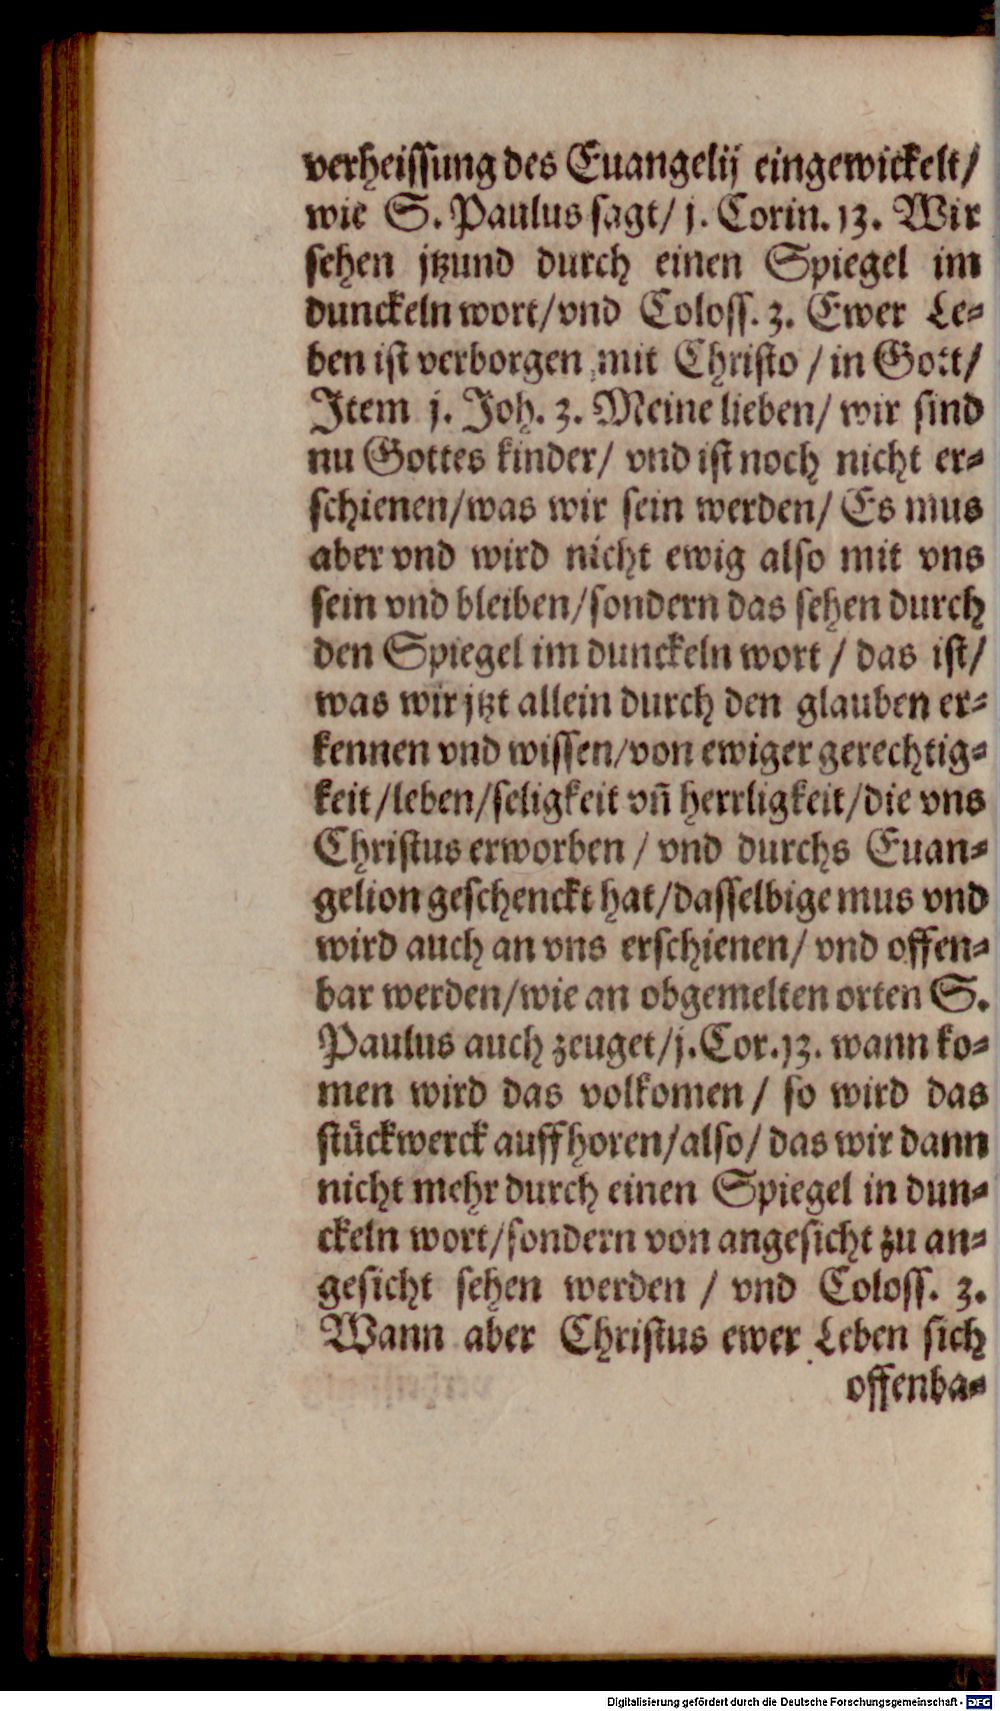 verheissung des Euangelij eingewickelt/
wie S. Paulus sagt/ j. Corin. 13. Wir
sehen jtzund durch einen Spiegel im
dunckeln wort/vnd Coloss. 3. Ewer Le-
ben ist verborgen mit Christo / in Gott/
Item j. Joh. 3. Meine lieben/ wir sind
nu Gottes kinder/ vnd ist noch nicht er-
schienen/was wir sein werden/ Es mus
aber vnd wird nicht ewig also mit vns
sein vnd bleiben/sondern das sehen durch
den Spiegel im dunckeln wort / das ist/
was wir jtzt allein durch den glauben er-
kennen vnd wissen/von ewiger gerechtig-
keit/leben/seligkeit vñ herrligkeit/die vns
Christus erworben / vnd durchs Euan-
gelion geschenckt hat/dasselbige mus vnd
wird auch an vns erschienen/ vnd offen-
bar werden/wie an obgemelten orten S.
Paulus auch zeuget/j.Cor.13. wann ko-
men wird das volkomen / so wird das
stückwerck auffhoren/also/ das wir dann
nicht mehr durch einen Spiegel in dun-
ckeln wort/sondern von angesicht zu an-
gesicht sehen werden / vnd Coloss. 3.
Wann aber Christus ewer Leben sich
offenba-
Digitalisierung gefördert durch die Deutsche Forschungsgemeinschaft - DFG